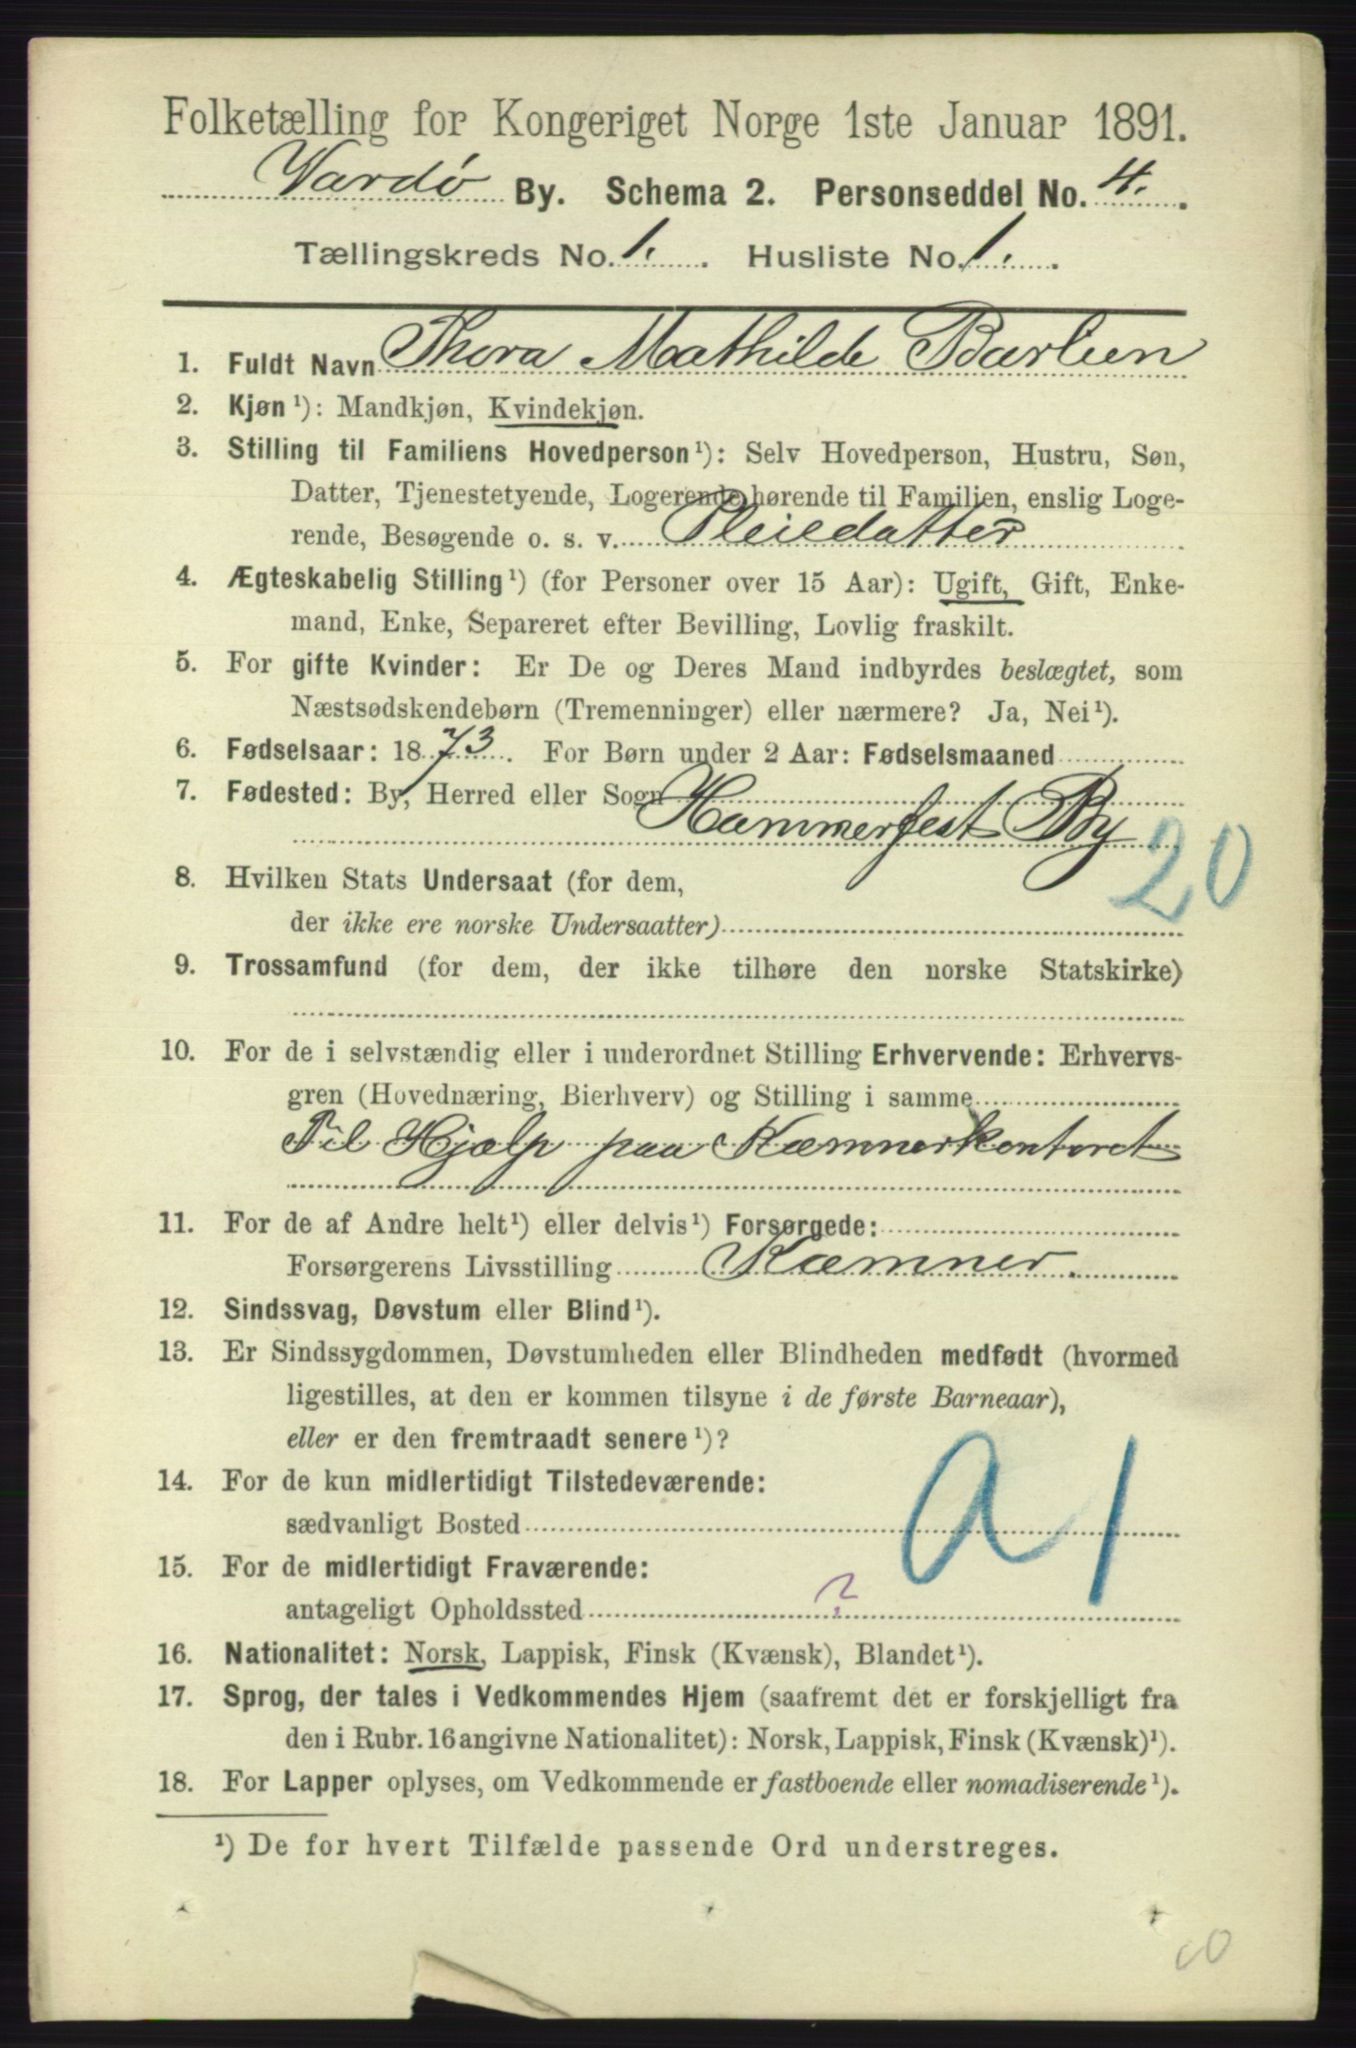 Folketælling for Kongeriget Norge 1ste Januar 1891.
Vardø By. Schema 2. Personseddel No. 4.
Tællingskreds No. 1. Husliste No. 1.
1. Fuldt Navn Thora Mathilde Barlien
2. Kjøn¹): Mandkjøn, Kvindekjøn.
3. Stilling til Familiens Hovedperson¹): Selv Hovedperson, Hustru, Søn,
Datter, Tjenestetyende, Logerende hørende til Familien, enslig Loge-
rende, Besøgende o. s. v. Pleiedatter
4. Ægteskabelig Stilling¹) (for Personer over 15 Aar): Ugift, Gift, Enke-
mand, Enke, Separeret efter Bevilling, Lovlig fraskilt.
5. For gifte Kvinder: Er De og Deres Mand indbyrdes beslægtet, som
Næstsødskendebørn (Tremenninger) eller nærmere? Ja, Nei¹).
6. Fødselsaar: 1873. For Børn under 2 Aar: Fødselsmaaned
7. Fødested: By, Herred eller Sogn
Hammerfest By
20
8. Hvilken Stats Undersaat (for dem,
der ikke ere norske Undersaatter)
9. Trossamfund (for dem, der ikke tilhøre den norske Statskirke)
10. For de i selvstændig eller i underordnet Stilling Erhvervende: Erhvervs-
gren (Hovednæring, Bierhverv) og Stilling i samme
Til Hjælp paa Kæmnerkontoret
11. For de af Andre helt¹) eller delvis¹) Forsørgede:
Forsørgerens Livsstilling Kæmner.
12. Sindssvag, Døvstum eller Blind¹).
13. Er Sindssygdommen, Døvstumheden eller Blindheden medfødt (hvormed
ligestilles, at den er kommen tilsyne i de første Barneaar),
eller er den fremtraadt senere¹)?
a 1
14. For de kun midlertidigt Tilstedeværende:
sædvanligt Bosted
15. For de midlertidigt Fraværende:
antageligt Opholdssted ?
16. Nationalitet: Norsk, Lappisk, Finsk (Kvænsk), Blandet¹).
17. Sprog, der tales i Vedkommendes Hjem (saafremt det er forskjelligt fra
den i Rubr. 16 angivne Nationalitet): Norsk, Lappisk, Finsk (Kvænsk)¹).
18. For Lapper oplyses, om Vedkommende er fastboende eller nomadiserende¹).
¹) De for hvert Tilfælde passende Ord understreges.